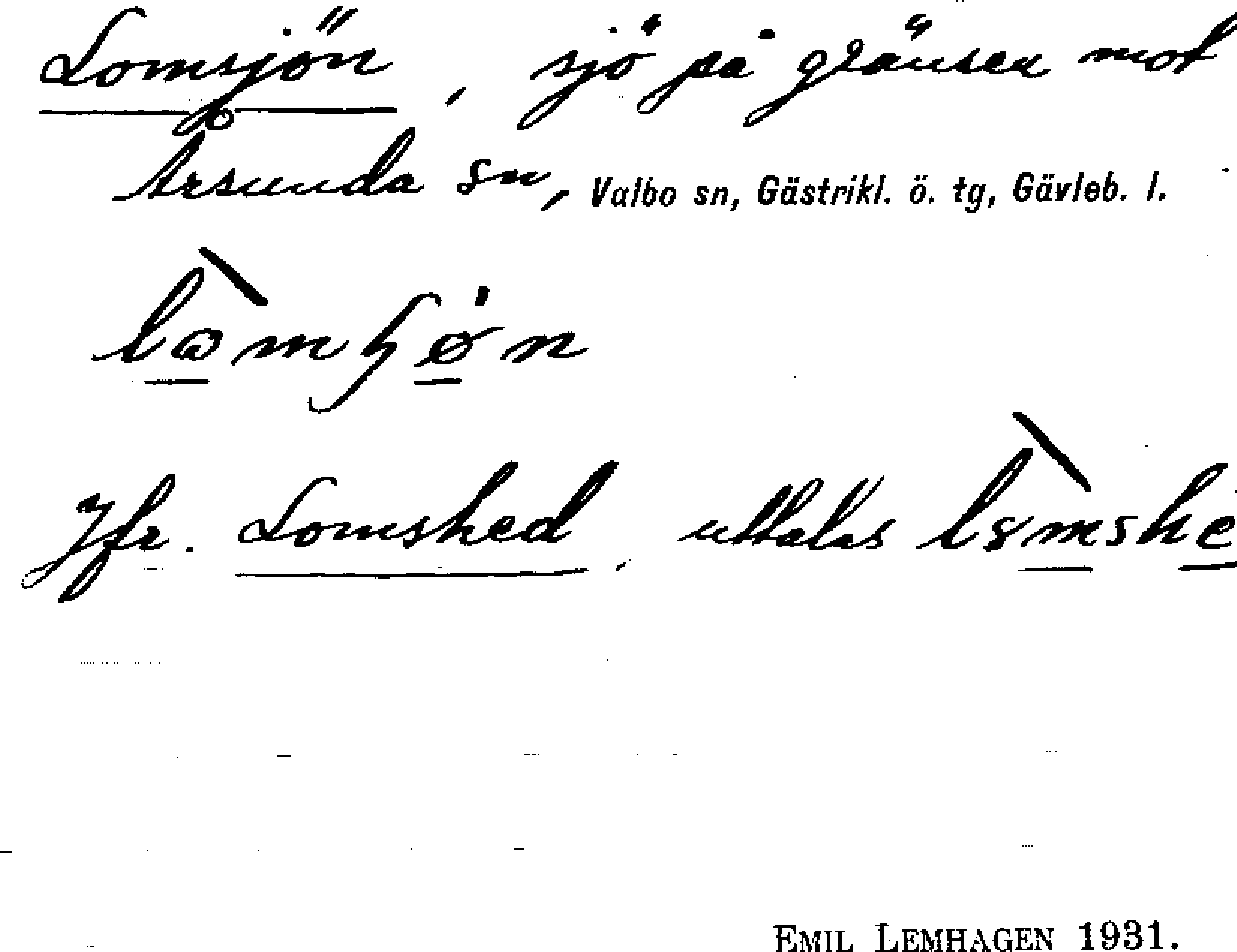 Lomsjön, sjö på gränsen mot
Årsunda sn, Valbo sn, Gästrikl. ö. tg, Gävleb. l.
Jfr. Lomshed, uttalas
EMIL LEMHAGEN 1931.